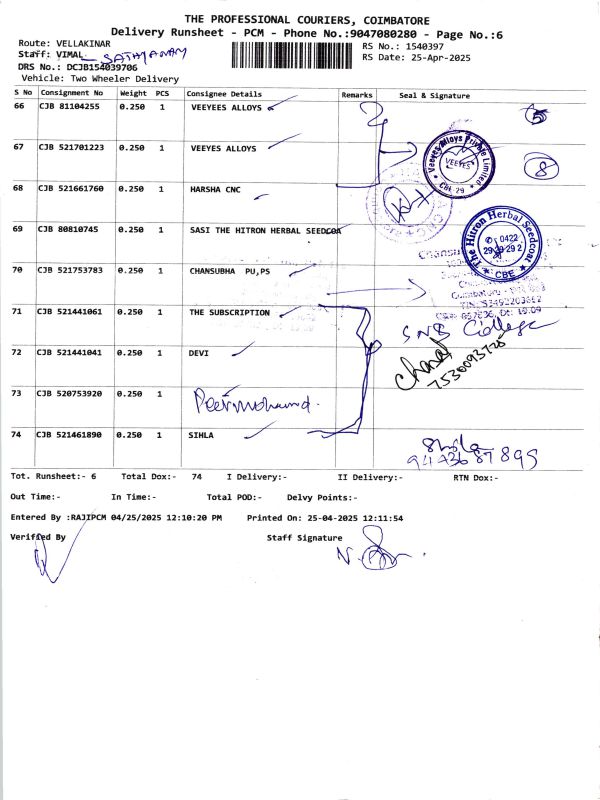 THE PROFESSIONAL COURIERS, COIMBATORE
Delivery Runsheet - PCM - Phone No.:9047080280 - Page No.:6
Route: VELLAKINAR
RS No.: 1540397
Staff: VIMAL SATHYANAM
RS Date: 25-Apr-2025
DRS No.: DCJB154039706
Vehicle: Two Wheeler Delivery
S No Consignment No Weight PCS Consignee Details Remarks Seal & Signature
66 CJB 81104255 0.250 1 VEEYEES ALLOYS 5
67 CJB 521701223 0.250 1 VEEYES ALLOYS Veeyes Alloys Private Limited VEEYES CBE 29 8
68 CJB 521661760 0.250 1 HARSHA CNC
69 CJB 80810745 0.250 1 SASI THE HITRON HERBAL SEEDCOA The Hitron Herbal Seedcoat 0422 CBE
70 CJB 521753783 0.250 1 CHANSUBHA PU,PS
71 CJB 521441061 0.250 1 THE SUBSCRIPTION SNB College
72 CJB 521441041 0.250 1 DEVI
73 CJB 520753920 0.250 1 Peermohamd.
74 CJB 521461890 0.250 1 SIHLA
Tot. Runsheet:- 6 Total Dox:- 74 I Delivery:- II Delivery:- RTN Dox:-
Out Time:- In Time:- Total POD:- Delvy Points:-
Entered By :RAJIPCM 04/25/2025 12:10:20 PM Printed On: 25-04-2025 12:11:54
Verified By Staff Signature